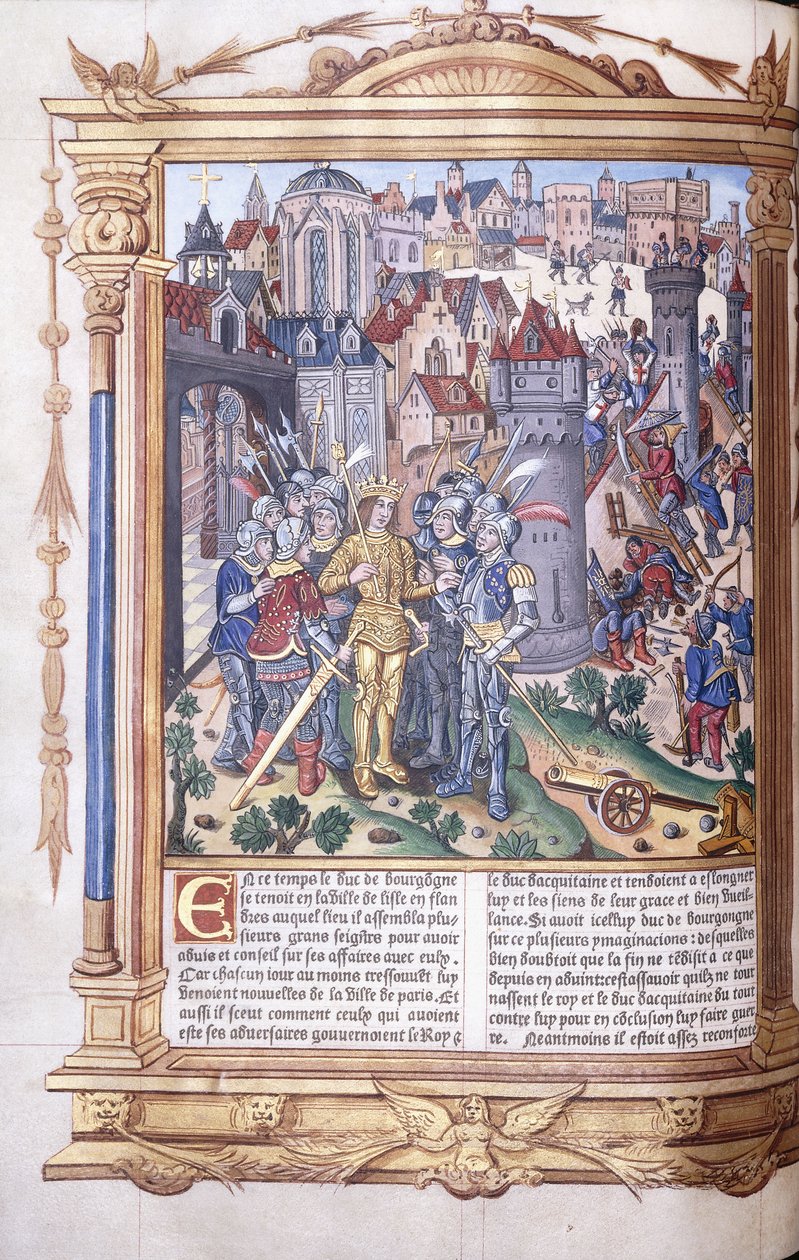 EN ce temps le duc de bourgõgne
se tenoit en la ville de lisle en flan
dres auquel lieu il assembla plu-
sieurs grans seigñrs pour auoir
aduis et conseil sur ses affaires auec eulx.
Car chascun iour au moins tressouuẽt luy
venoient nouuelles de la ville de paris. Et
aussi il sceut comment ceulx qui auoient
este ses aduersaires gouuernoient le Roy ⁊
le duc dacquitaine et tendoient a eslongner
luy et les siens de leur grace et bien vueil-
lance. Si auoit icelluy duc de bourgongne
sur ce plusieurs ymaginacions: desquelles
bien doubtoit que la fin ne tẽdisit a ce que
depuis en aduint: cest assauoir quilz ne tour
nassent le roy et le duc dacquitaine du tout
contre luy pour en cõclusion luy faire guer
re. Neantmoins il estoit assez reconforte